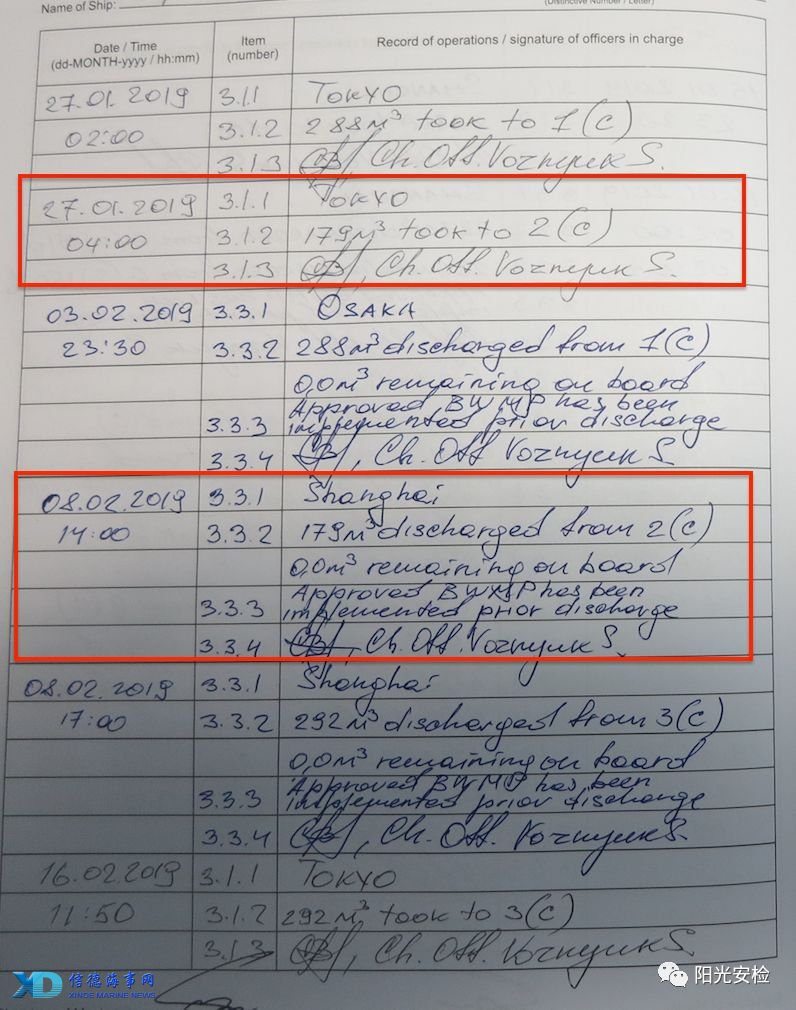 Name of Ship:
(Distinctive Number / Letter)
Date / Time
(dd-MONTH-yyyy / hh:mm)
Item
(number)
Record of operations / signature of officers in charge
27.01.2019 3.1.1 TOKYO
02:00 3.1.2 288м³ took to 1(C)
3.1.3 Ch. Off. Voznyuk S.
27.01.2019 3.1.1 TOKYO
04:00 3.1.2 179м³ took to 2(C)
3.1.3 Ch. Off. Voznyuk S.
03.02.2019 3.3.1 OSAKA
23:30 3.3.2 288м³ discharged from 1(C)
0,0м³ remaining on board
Approved BWMP has been
3.3.3 implemented prior discharge
3.3.4 Ch. Off. Voznyuk S.
08.02.2019 3.3.1 Shanghai
14:00 3.3.2 179м³ discharged from 2(C)
0,0м³ remaining on board
Approved BWMP has been
3.3.3 implemented prior discharge
3.3.4 Ch. Off. Voznyuk S.
08.02.2019 3.3.1 Shanghai
17:00 3.3.2 292м³ discharged from 3(C)
0,0м³ remaining on board
Approved BWMP has been
3.3.3 implemented prior discharge
3.3.4 Ch. Off. Voznyuk S.
16.02.2019 3.1.1 TOKYO
11:50 3.1.2 292м³ took to 3(C)
3.1.3 Ch. Off. Voznyuk S.
XD 信德海事网
XINDE MARINE NEWS
阳光安检